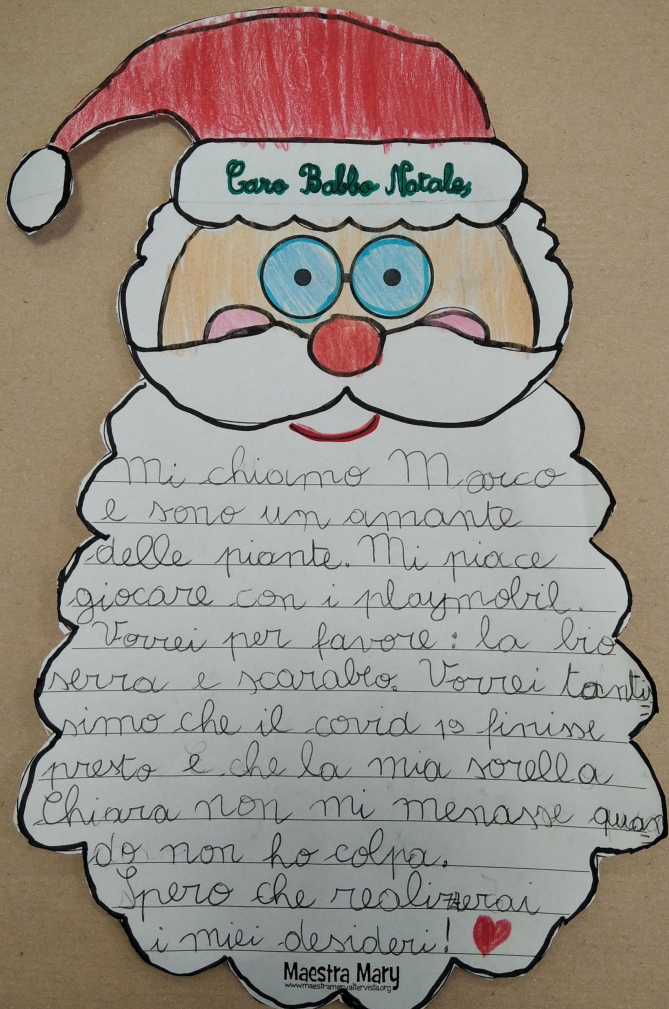 Caro Babbo Natale,
Mi chiamo Marco
e sono un amante
delle piante. Mi piace
giocare con i playmobil.
Vorrei per favore: la bio
serra e scarabeo. Vorrei tantis
simo che il covid 19 finisse
presto e che la mia sorella
Chiara non mi menasse quan
do non ho colpa.
Spero che realizzerai
i miei desideri!
Maestra Mary
www.maestramary.altervista.org